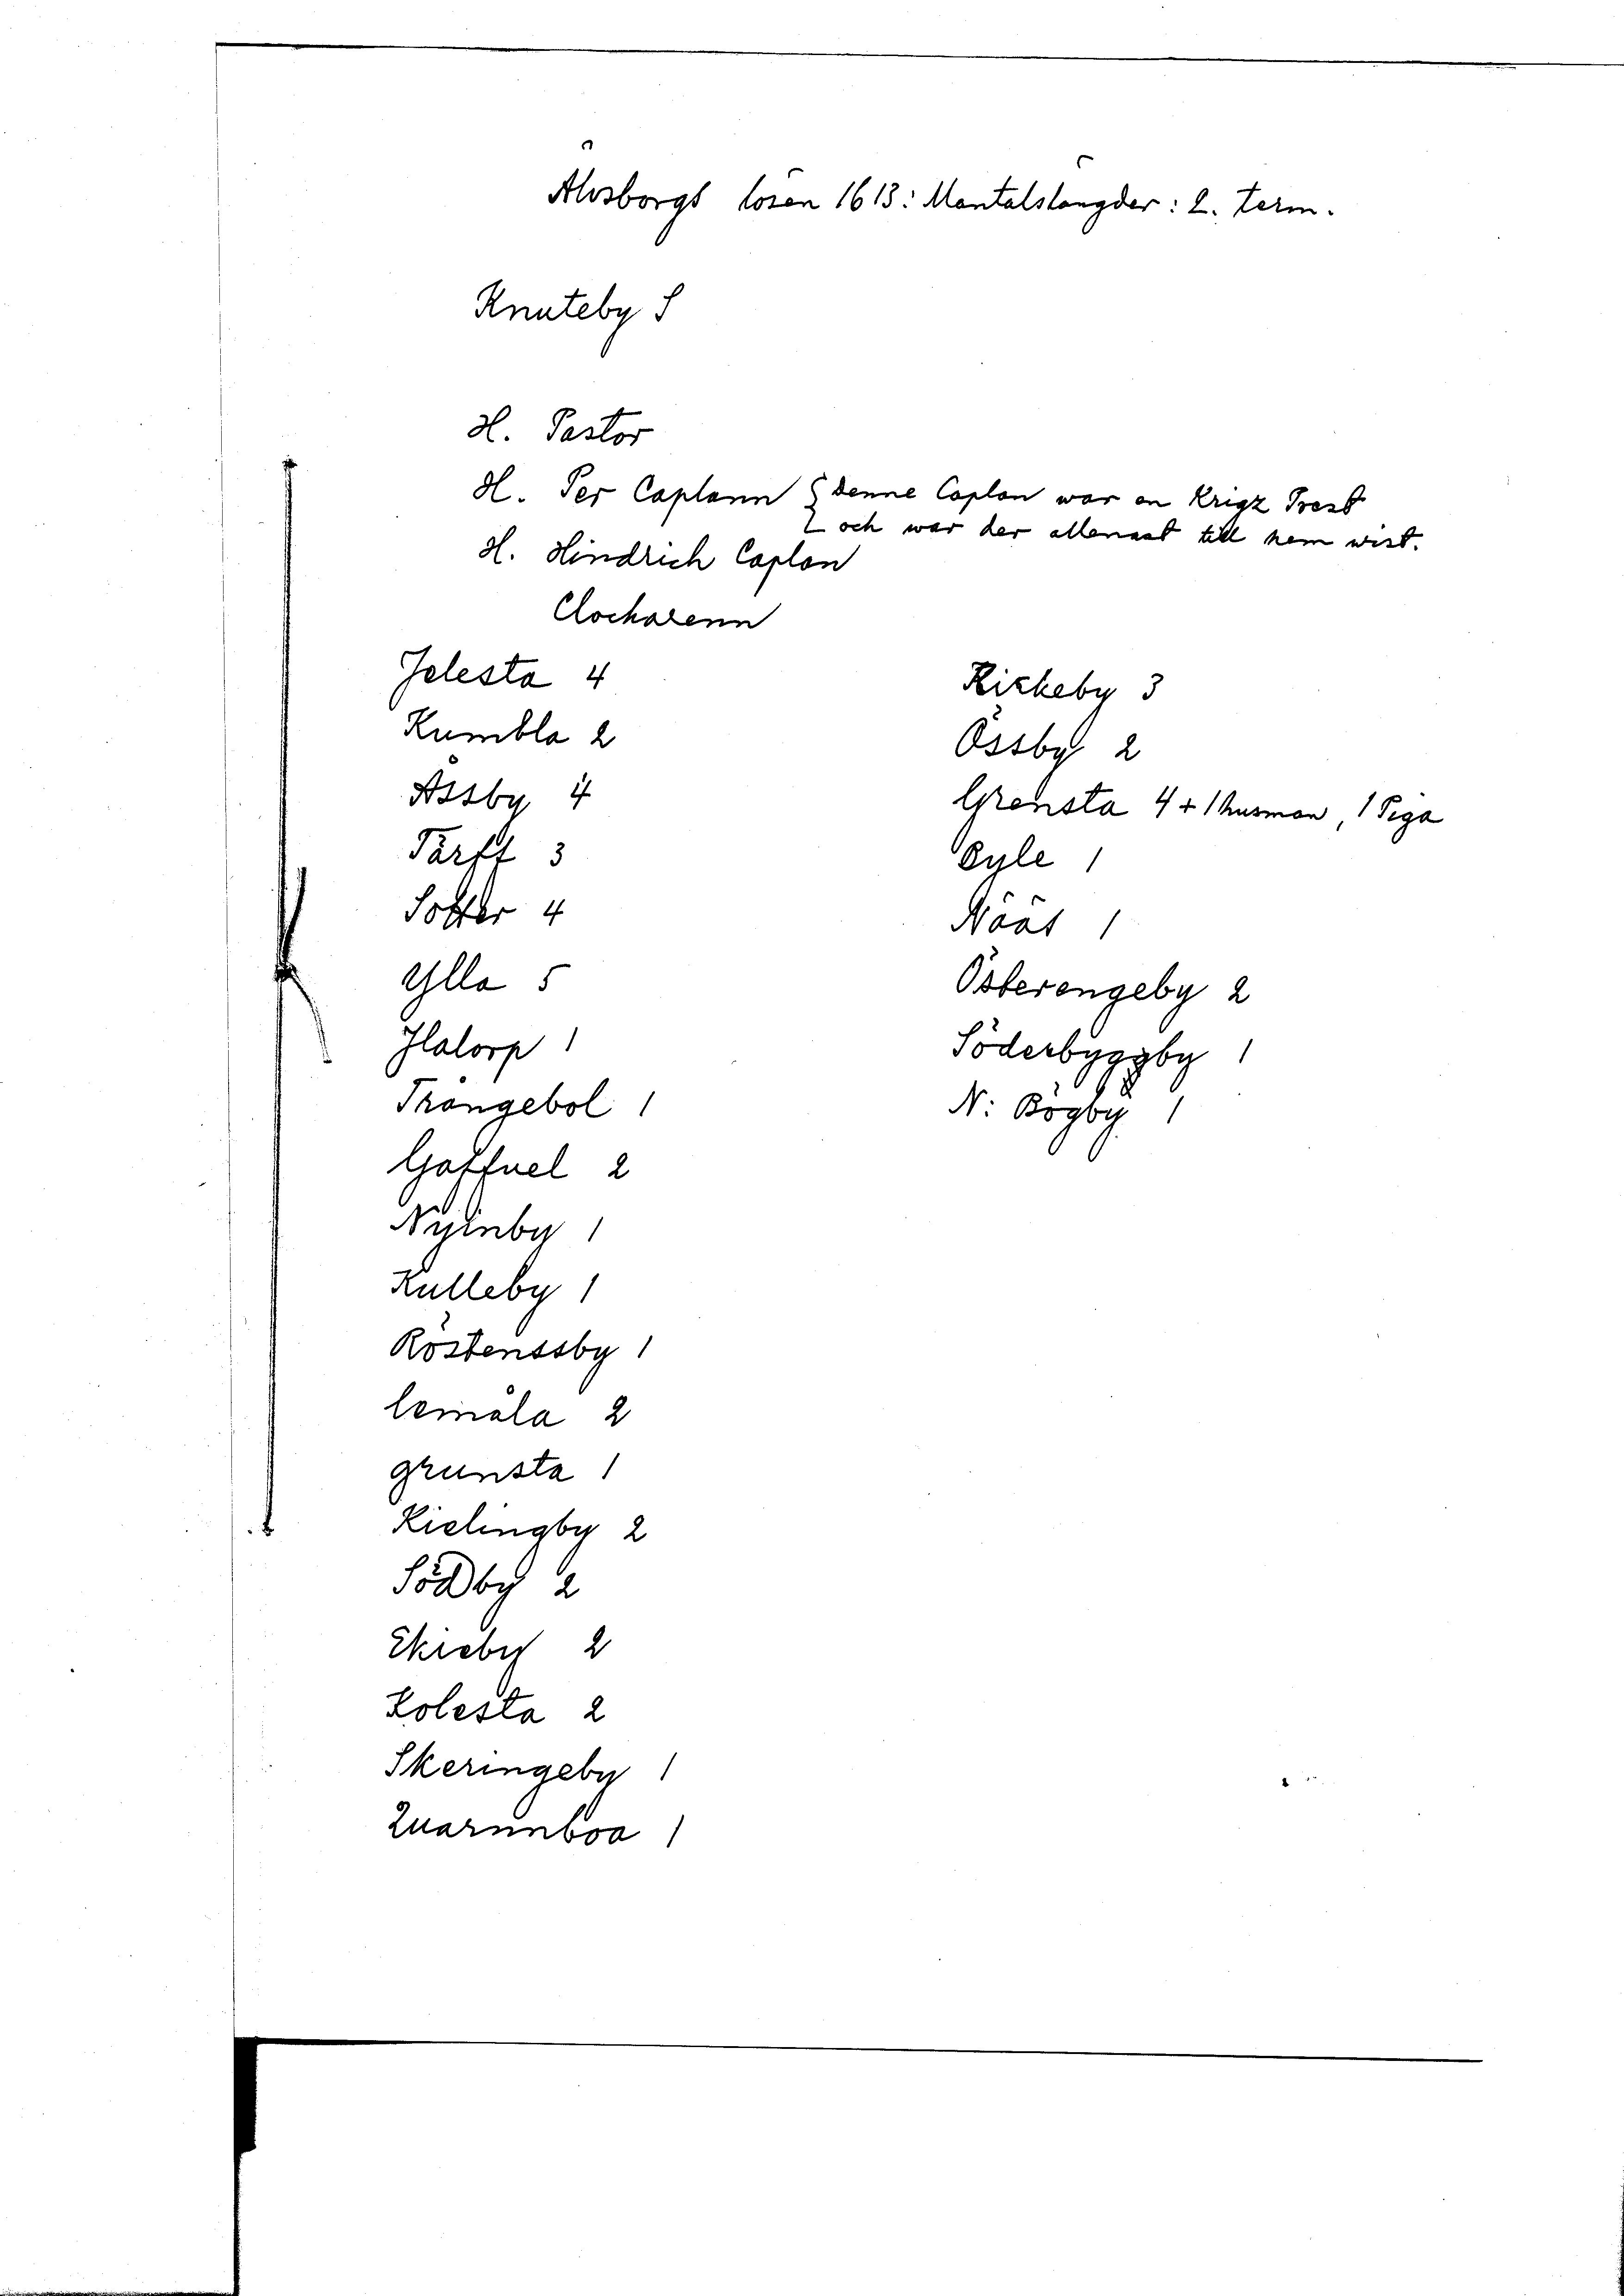 Älvsborgs lösen 1613: Mantalslängder: 2. term.
Knuteby S
H. Pastor
H. Per Caplann { denne Caplan war en Krigz Prest
och war der allenast till hem wist.
H. Hindrich Caplan
Clockarenn
Jelesta 4
Kumbla 2
Åssby 4
Tärft 3
Sotter 4
Ylla 5
Jlatorp 1
Trångebol 1
Gaffuel 2
Nyinby 1
Kulleby 1
Röstenssby 1
lemåla 2
grunsta 1
Kielingby 2
Södby 2
Ekieby 2
Kolesta 2
Skeringeby 1
Quarnnboa 1
Kirkeby 3
Össby 2
Grensta 4 + 1 husman, 1 Piga
Eyle 1
Nääs 1
Österengeby 2
Söderbyggby 1
N: Bögby 1